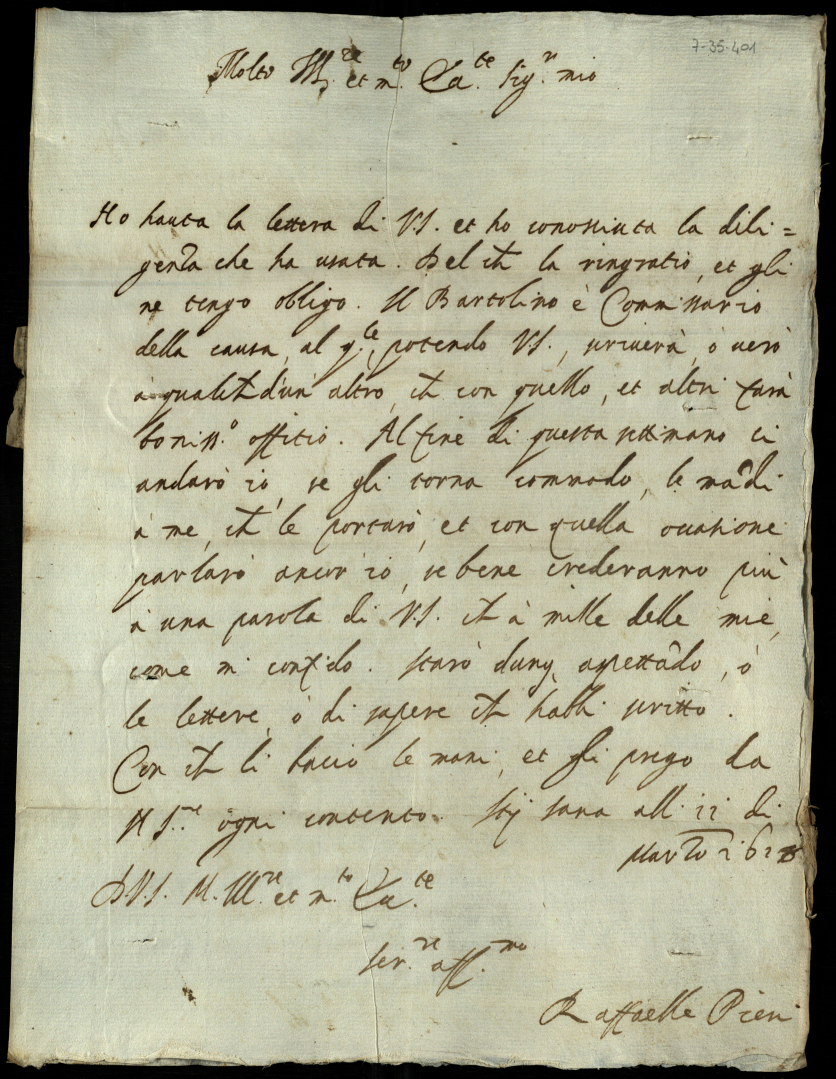 7-35-401
Molto Ill.re et m.to Ecc.te Sig.r mio
Ho hauta la lettera di V.S. et ho conosciuta la dili=
genza che ha usata. Del ch la ringratio, et gli
ne tengo obligo. Il Bartolino è Commissario
della causa, al q.le, potendo V.S., scriverà, ò verò
à qualch d'un altro, ch con quello, et altri farà
boniss.o offitio. Al fine di questa settimana ci
andarò io, se gli torna commodo, le madi
à me, ch le portarò, et con quella occasione
parlarò ancor io, se bene crederanno più
à una parola di V.S. ch à mille delle mie,
come mi confido. Starò dunq aspettado, ò
le lettere, ò di sapere ch habbi scritto.
Con ch li bacio le mani, et gli prego da
N S.re ogni contento. Stij sana alli 11 di
Marzo
D.V.S. M. Ill.re et m.to Ecc.te
Ser.re aff.mo
Raffaelle Pieri